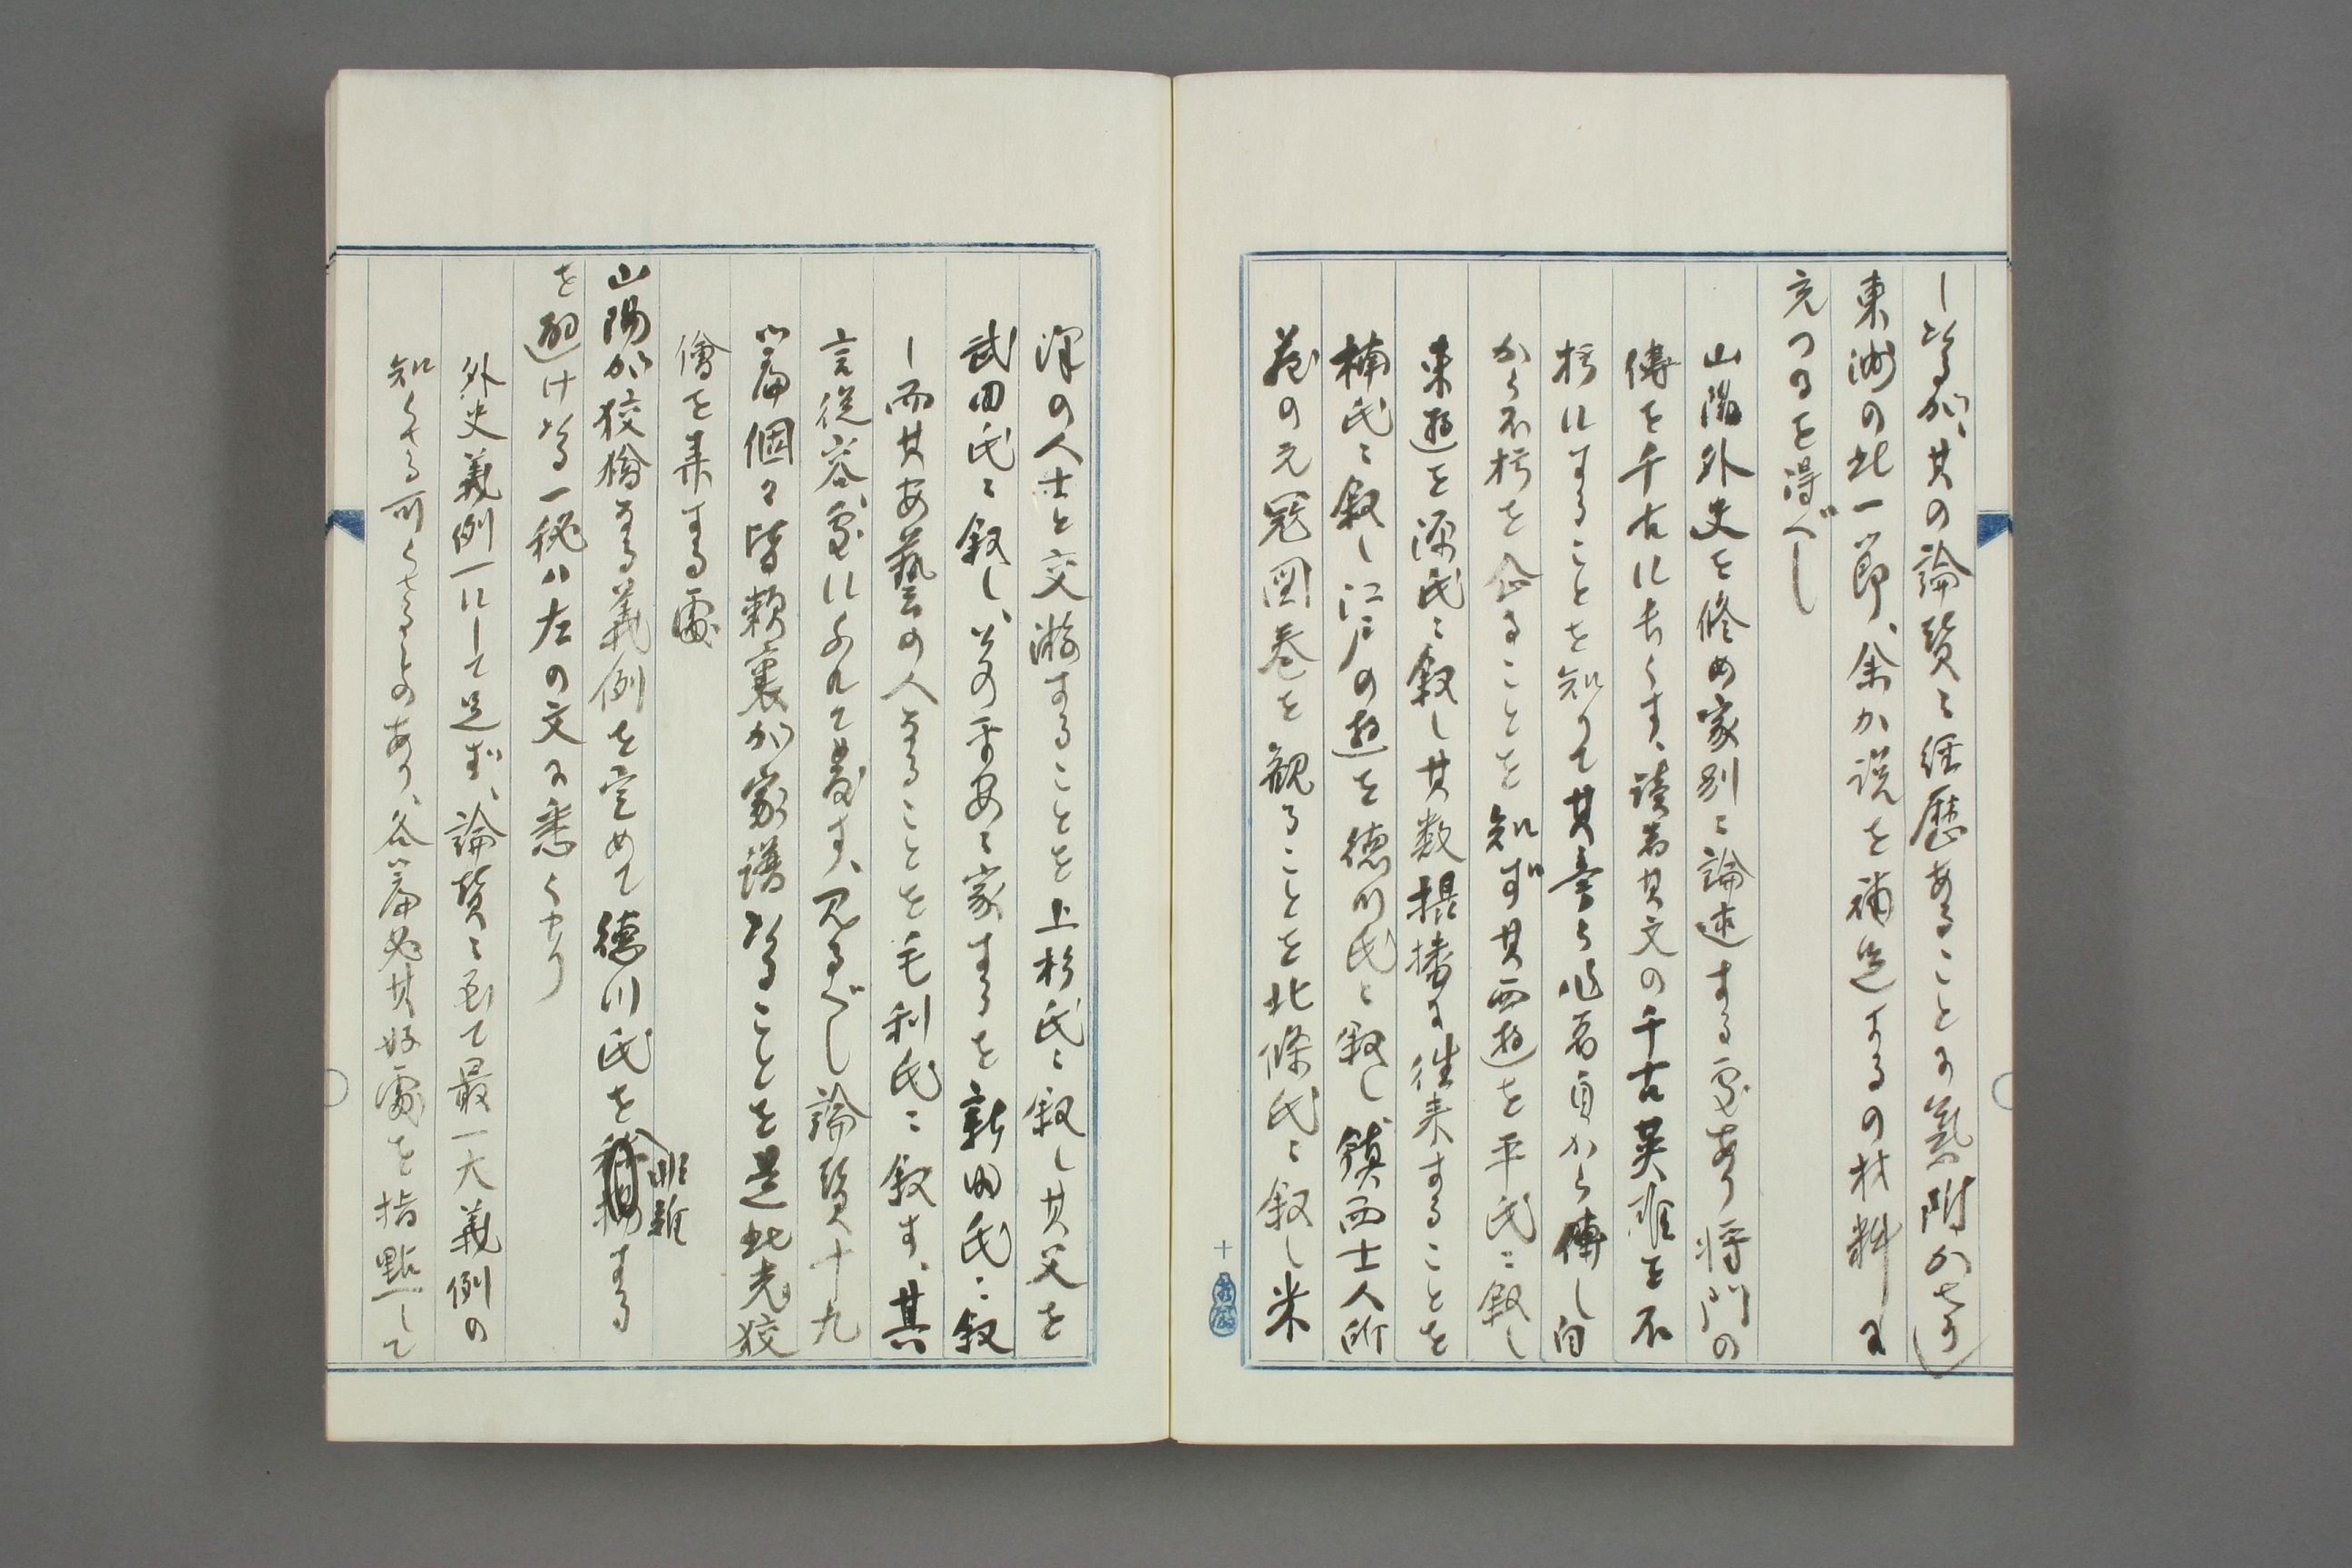 しなるが、其の論賛に経歴あることに気附かせり
東洲の此一節、余か説を補足するの材料に
充つるを得べし
山陽外史を修め家別に論述する処あり将門の
傳を千古に朽くす、読者其文の千古英雄を不
朽にすることを知りて其書も作者自から傳し自
から不朽を企ることを知ず其西遊を平氏に叙し
東遊を源氏に叙し其数摂播に往来することを
楠氏に叙し江戸の遊を徳川氏に叙し鎮西士人所
蔵の元冦図巻を観ることを北條氏に叙し米
澤の人士と交游することを上杉氏に叙し其父を
武田氏に叙し、其の平安に家するを新田氏に叙
し而其安藝の人なることを毛利氏に叙す、其
言従容處にふれて発す、見るべし論賛十九
篇個々皆頼襄が家譜なることを是此老狡
儈を弄する處
山陽が狡獪なる義例を定めて徳川氏を非難する
を避けなる一秘ハ左の文に悉くせり
外史義例一にして足ず、論賛に至て最一大義例の
知くせる可くせるものあり、各篇必其好處を指點して